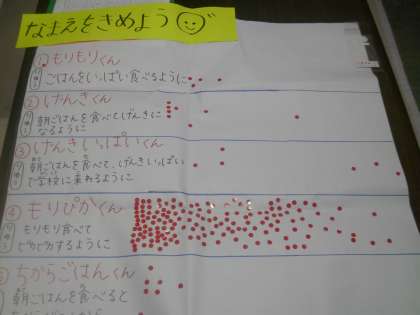 なまえをきめよう
①もりもりくん
りゆう ごはんをいっぱい食べるように
②げんきくん
りゆう 朝ごはんを食べてげんきに
なるように
③げんきいっぱいくん
りゆう 朝ごはんを食べて、げんきいっぱい
で学校に来れるように
④もりぴかくん
りゆう もりもり食べて
ぴかぴかするように
⑤ちからごはんくん
朝ごはんを食べると